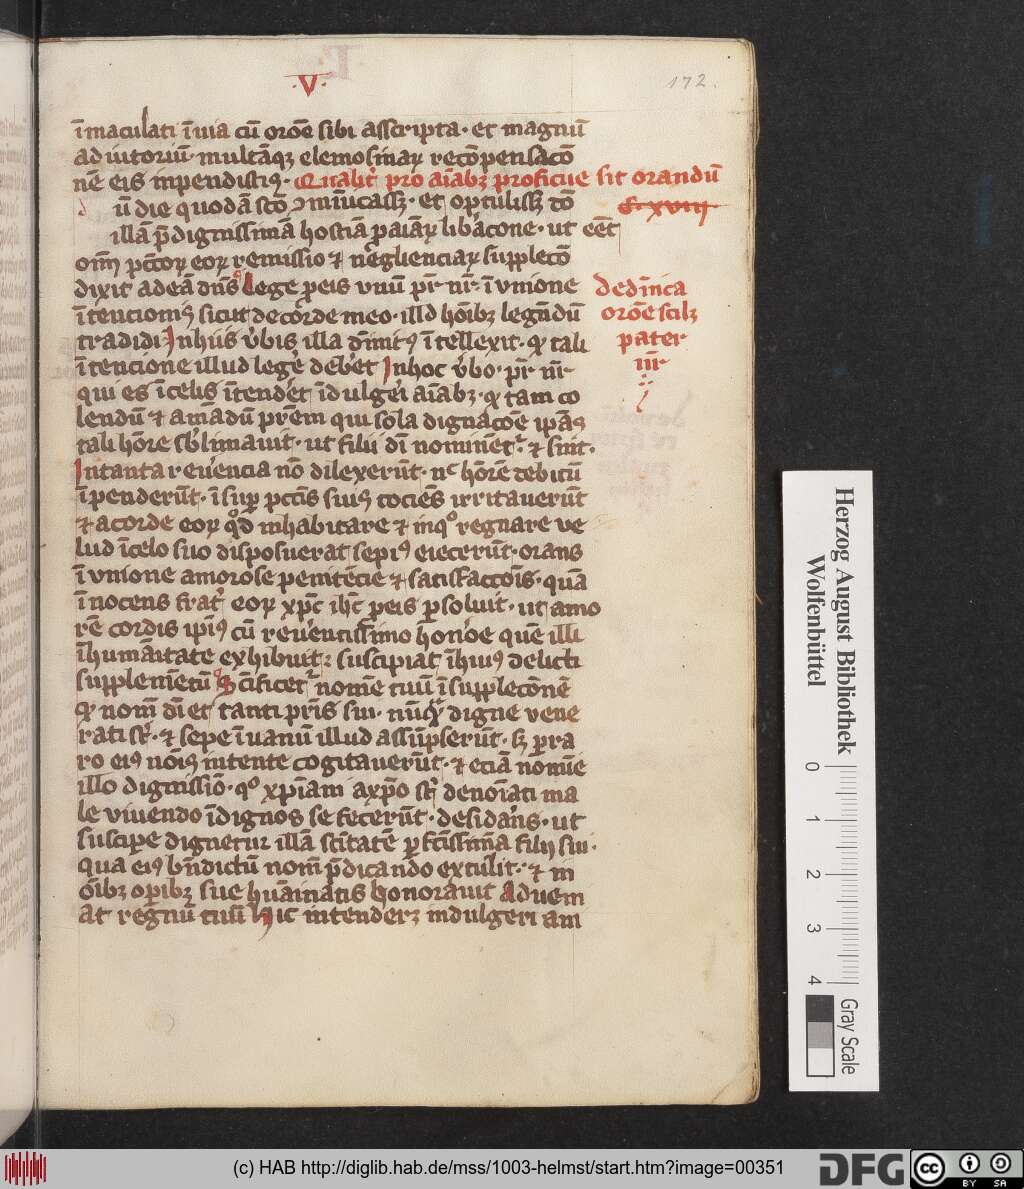 ·V·
172.
īmaculati ī uia cū orōe sibi asscripta· et magnū
adiutoriū· multāqꝫ elemosinaꝝ recōpensacō
nē eis inpendistis· Qualit᷑ pro aīabꝫ proficue sit orandū
C· xviij
ū die quodā scō ꝯmūicassꝫ· et optulissꝫ
illā p̄dignissimā hostiā p aīaꝝ libacōne· ut eēt
oīm pctōꝝ eoꝝ remissio ⁊ negliencíaꝝ supplecō
dixit ad eā dn̄s Lege p eis vnū pr̄ nr̄· ī vnione
ītencionis sicut de corde meo· illd hōībꝫ legn̄dū
tradidi Inhiis v̄bis illa dīnitꝰ ītellexit· qꝫ tali
ītencione illud legē debet Inhoc v̄bo· pr̄ nr̄
de dn̄ica
orōe scilꝫ
pater
nr̄
qui es ī celis ītendet īdulgeri aīabꝫ· qꝫ tam co
lendū ⁊ amādū prēm qui sola dignacōe ipās
tali honōre sblimauit· ut filii dī nominēt᷑· ⁊ sint·
Intanta reuēencia nō dilexerūt· nͨ honōrē debitū
īpenderūt· īsuꝑ pctīs suis tociēs irritauerūt
⁊ a corde eoꝝ qd inhabitare ⁊ in qͦ regnare ve
lud ī celo suo disposuerat sepiꝰ eiecerūt· orans
ī vnione amorose penitēcie ⁊ satisfacconīs· quā
īnocens frat᷑ eoꝝ xp̄c ihc p eis ꝑsoluit· ut amo
rē cordis ip̄iꝰ cū reuēntissimo honōe quē illi
ī humāitate exhibuit᷑ suscipiat ī huiꝰ delicti
supplemētū Scīficet᷑ nomē tuū ī supplecōnē
qꝫ nom̄ dī et tanti pr̄is sui· nūqꝫ digne vene
rati st̄· ⁊ sepe ī uanū illud assūpserūt· sꝫ ꝑ ra
ro eiꝰ nōis intente cogitauerūt· ⁊ eciā nomīe
illo dignissiō· qͦ xp̄iani a xp̄o st̄ denoīati ma
le viuendo īdignos se fecerūt· desidāns· ut
suscipe dignetur illā scītatē ꝑfcīssimā filij sui·
qua eiꝰ bn̄dictū nom̄ p̄dicando extulit· ⁊ in
oībꝫ oꝑibꝫ sue huāmatis honorauit Adueni
at regnū tuū hic intendeꝛꝫ indulgeri am
Herzog August Bibliothek
Wolfenbüttel
0 1 2 3 4
Gray Scale
(c) HAB http://diglib.hab.de/mss/1003-helmst/start.htm?image=00351
DFG
cc BY SA